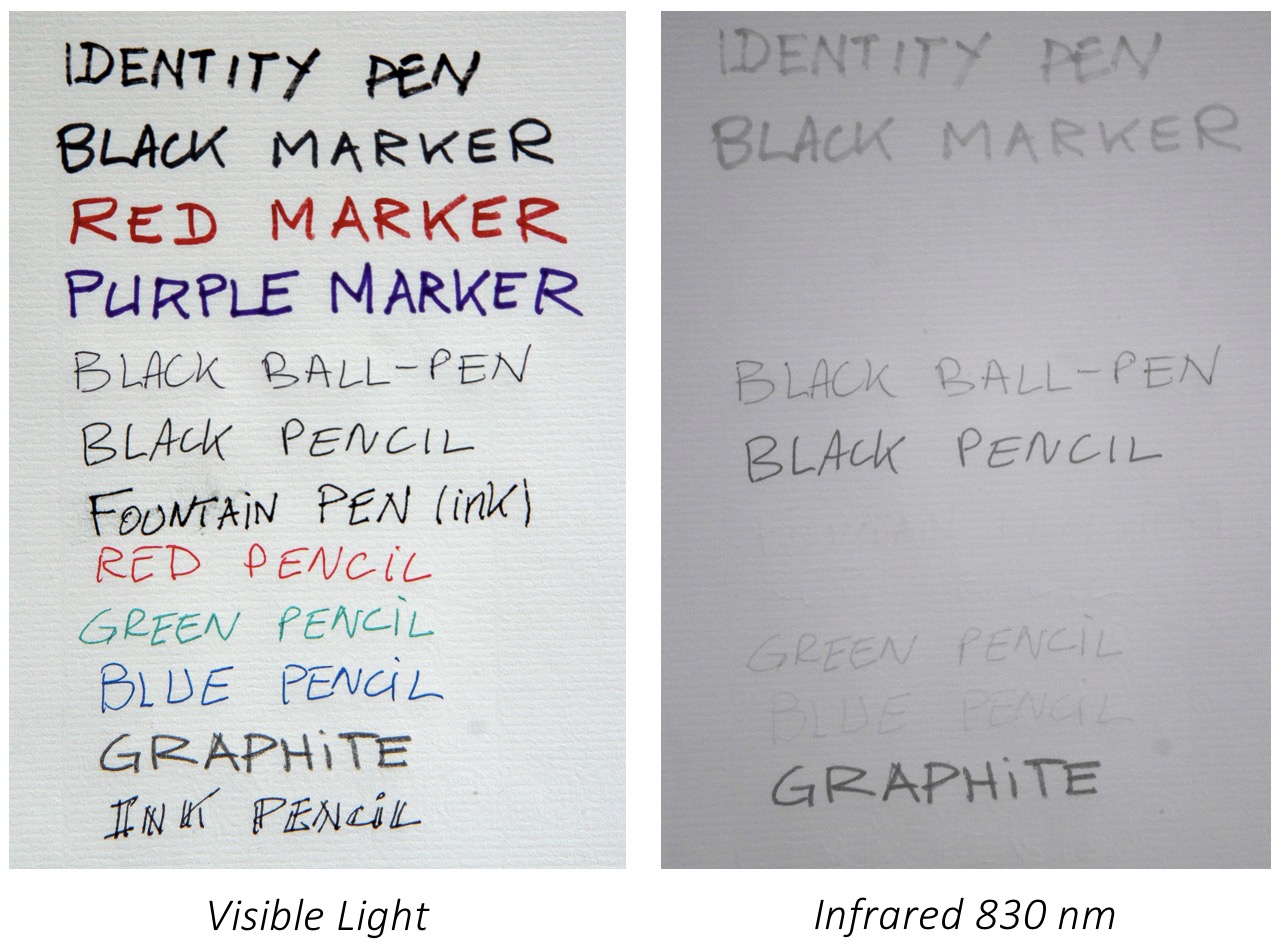 IDENTITY PEN
BLACK MARKER
RED MARKER
PURPLE MARKER
BLACK BALL-PEN
BLACK PENCIL
FOUNTAIN PEN (inK)
RED PENCiL
GREEN PENCiL
BLUE PENCiL
GRAPHiTE
INK PENCiL
Visible Light
IDENTITY PEN
BLACK MARKER
BLACK BALL-PEN
BLACK PENCIL
GREEN PENCiL
BLUE PENCiL
GRAPHiTE
Infrared 830 nm